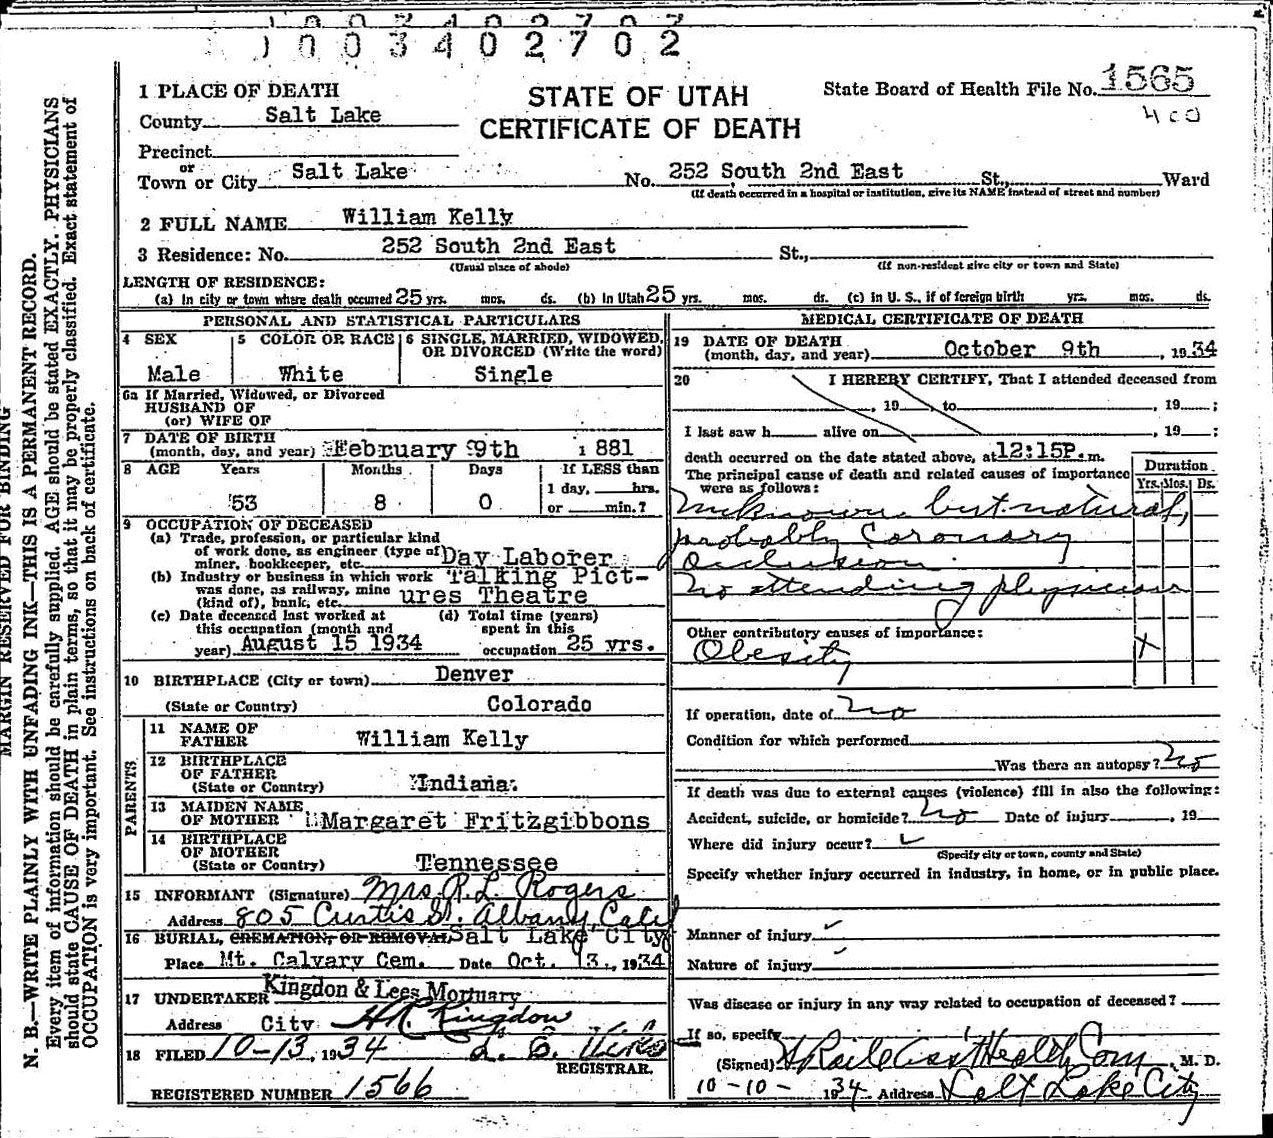 1003402702
1003402702
STATE OF UTAH
CERTIFICATE OF DEATH
State Board of Health File No. 1565
400
1 PLACE OF DEATH
County Salt Lake
Precinct
or
Town or City Salt Lake No. 252 South 2nd East St., Ward
(If death occurred in a hospital or institution, give its NAME instead of street and number)
2 FULL NAME William Kelly
3 Residence: No. 252 South 2nd East St.,
(Usual place of abode) (If non-resident give city or town and State)
LENGTH OF RESIDENCE:
(a) In city or town where death occurred 25 yrs. mos. ds. (b) In Utah 25 yrs. mos. ds. (c) In U. S., if of foreign birth yrs. mos. ds.
PERSONAL AND STATISTICAL PARTICULARS
4 SEX Male
5 COLOR OR RACE White
6 SINGLE, MARRIED, WIDOWED, OR DIVORCED (Write the word) Single
6a If Married, Widowed, or Divorced
HUSBAND OF
(or) WIFE OF
7 DATE OF BIRTH
(month, day, and year) February 9th 1881
8 AGE Years Months Days If LESS than
53 8 0 1 day, hrs.
or min.?
9 OCCUPATION OF DECEASED
(a) Trade, profession, or particular kind
of work done, as engineer (type of
miner, bookkeeper, etc. Day Laborer
(b) Industry or business in which work Talking Pict-
was done, as railway, mine
(kind of), bank, etc. ures Theatre
(c) Date deceased last worked at (d) Total time (years)
this occupation (month and spent in this
year) August 15 1934 occupation 25 yrs.
10 BIRTHPLACE (City or town) Denver
(State or Country) Colorado
PARENTS
11 NAME OF
FATHER William Kelly
12 BIRTHPLACE
OF FATHER
(State or Country) Indiana
13 MAIDEN NAME
OF MOTHER Margaret Fritzgibbons
14 BIRTHPLACE
OF MOTHER
(State or Country) Tennessee
15 INFORMANT (Signature) Mrs. R. L. Rogers
Address 805 Curtis St. Albany, Calif
16 BURIAL, CREMATION, OR REMOVAL Salt Lake City
Place Mt. Calvary Cem. Date Oct. 13, 1934
17 UNDERTAKER Kingdon & Lees Mortuary
Address City Kingdon
18 FILED 10-13, 1934
REGISTRAR.
REGISTERED NUMBER 1566
MEDICAL CERTIFICATE OF DEATH
19 DATE OF DEATH
(month, day, and year) October 9th, 1934
20 I HEREBY CERTIFY, That I attended deceased from
, 19 to , 19 ;
I last saw h alive on , 19 ;
death occurred on the date stated above, at 12:15P.m.
The principal cause of death and related causes of importance
were as follows:
Duration
Yrs. Mos. Ds.
Unknown but natural,
probably Coronary
occlusion.
No attending physician
Other contributory causes of importance:
Obesity X
If operation, date of no
Condition for which performed
Was there an autopsy? no
If death was due to external causes (violence) fill in also the following:
Accident, suicide, or homicide? no Date of injury , 19
Where did injury occur?
(Specify city or town, county and State)
Specify whether injury occurred in industry, in home, or in public place.
Manner of injury
Nature of injury
Was disease or injury in any way related to occupation of deceased?
If so, specify
(Signed) Asst Health Com, M. D.
10-10- 1934 Address Salt Lake City
MARGIN RESERVED FOR BINDING
N. B.—WRITE PLAINLY WITH UNFADING INK—THIS IS A PERMANENT RECORD.
Every item of information should be carefully supplied. AGE should be stated EXACTLY. PHYSICIANS
should state CAUSE OF DEATH in plain terms, so that it may be properly classified. Exact statement of
OCCUPATION is very important. See instructions on back of certificate.